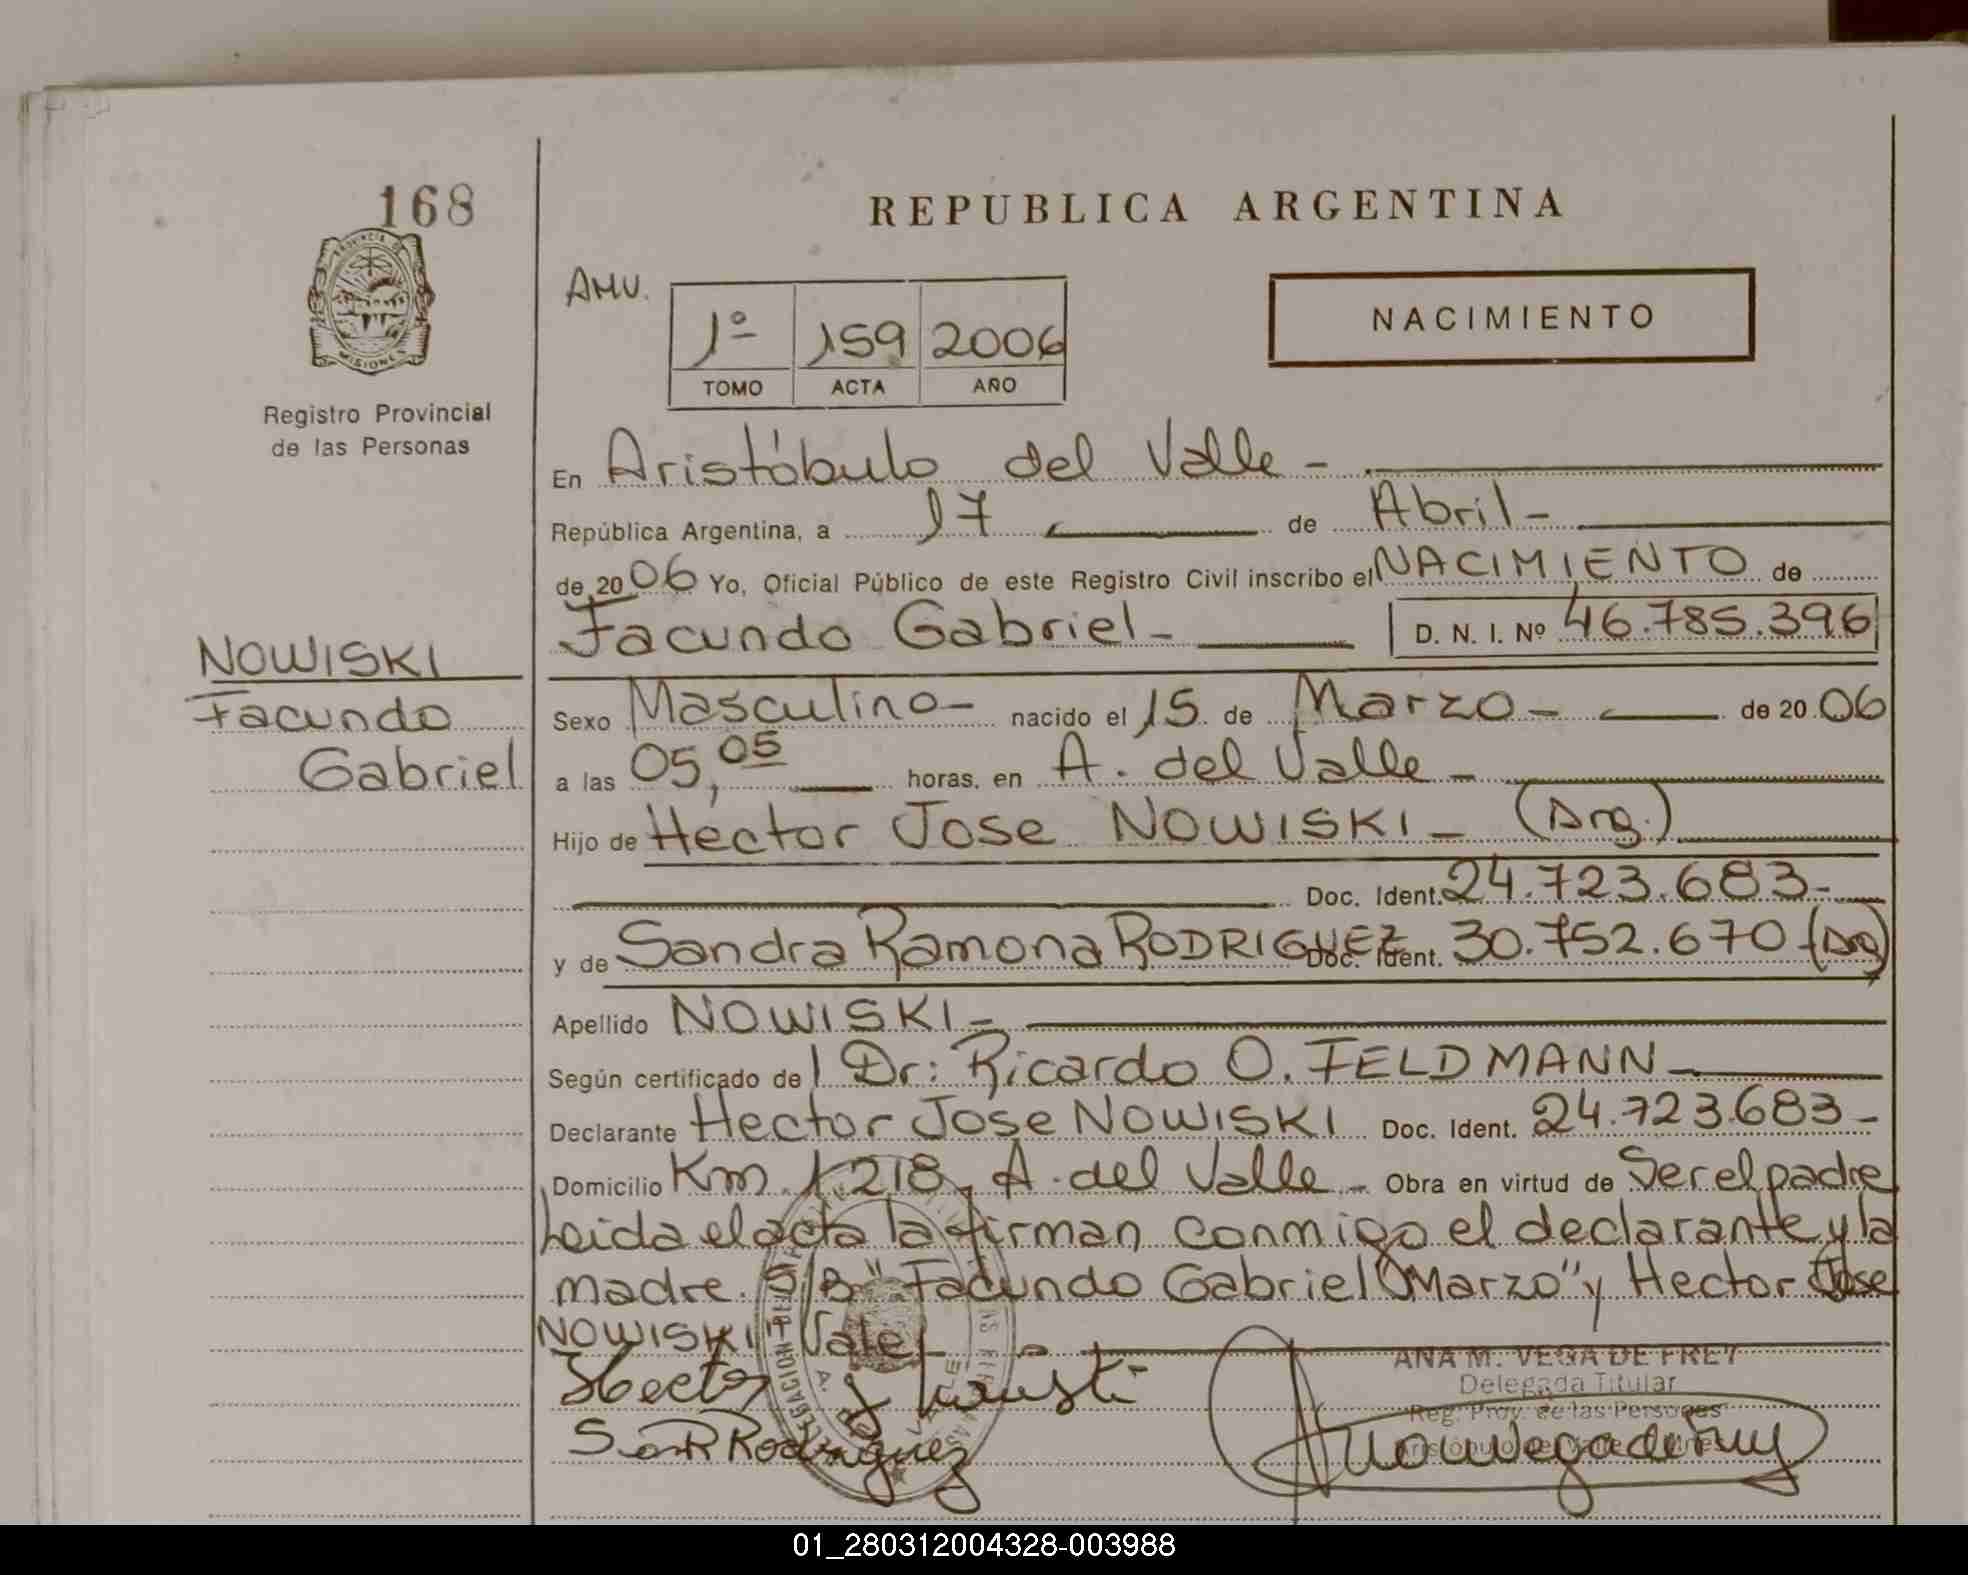 168
PROVINCIA DE
MISIONES
Registro Provincial
de las Personas
NOWISKI
Facundo
Gabriel
REPUBLICA ARGENTINA
AMU.
1º 159 2006
TOMO ACTA AÑO
NACIMIENTO
En Aristóbulo del Valle -
República Argentina, a 17 de Abril -
de 2006 Yo, Oficial Público de este Registro Civil inscribo el NACIMIENTO de
Facundo Gabriel - D. N. I. Nº 46.785.396
Sexo Masculino - nacido el 15 de Marzo - de 2006
a las 05,05 horas, en A. del Valle -
Hijo de Hector Jose NOWISKI - (Arg.)
Doc. Ident. 24.723.683 -
y de Sandra Ramona RODRIGUEZ Doc. Ident. 30.752.670 (Arg)
Apellido NOWISKI -
Según certificado del Dr: Ricardo O. FELDMANN -
Declarante Hector Jose NOWISKI Doc. Ident. 24.723.683 -
Domicilio Km. 1.218, A. del Valle - Obra en virtud de Ser el padre
Leida el acta la firman conmigo el declarante y la
madre. S/B "Facundo Gabriel "Marzo" y Hector Jose
NOWISKI" Vale -
Hector J Nowiski
San R Rodriguez
ANA M. VEGA DE FREY
Delegada Titular
Reg. Prov. de las Personas
01_280312004328-003988